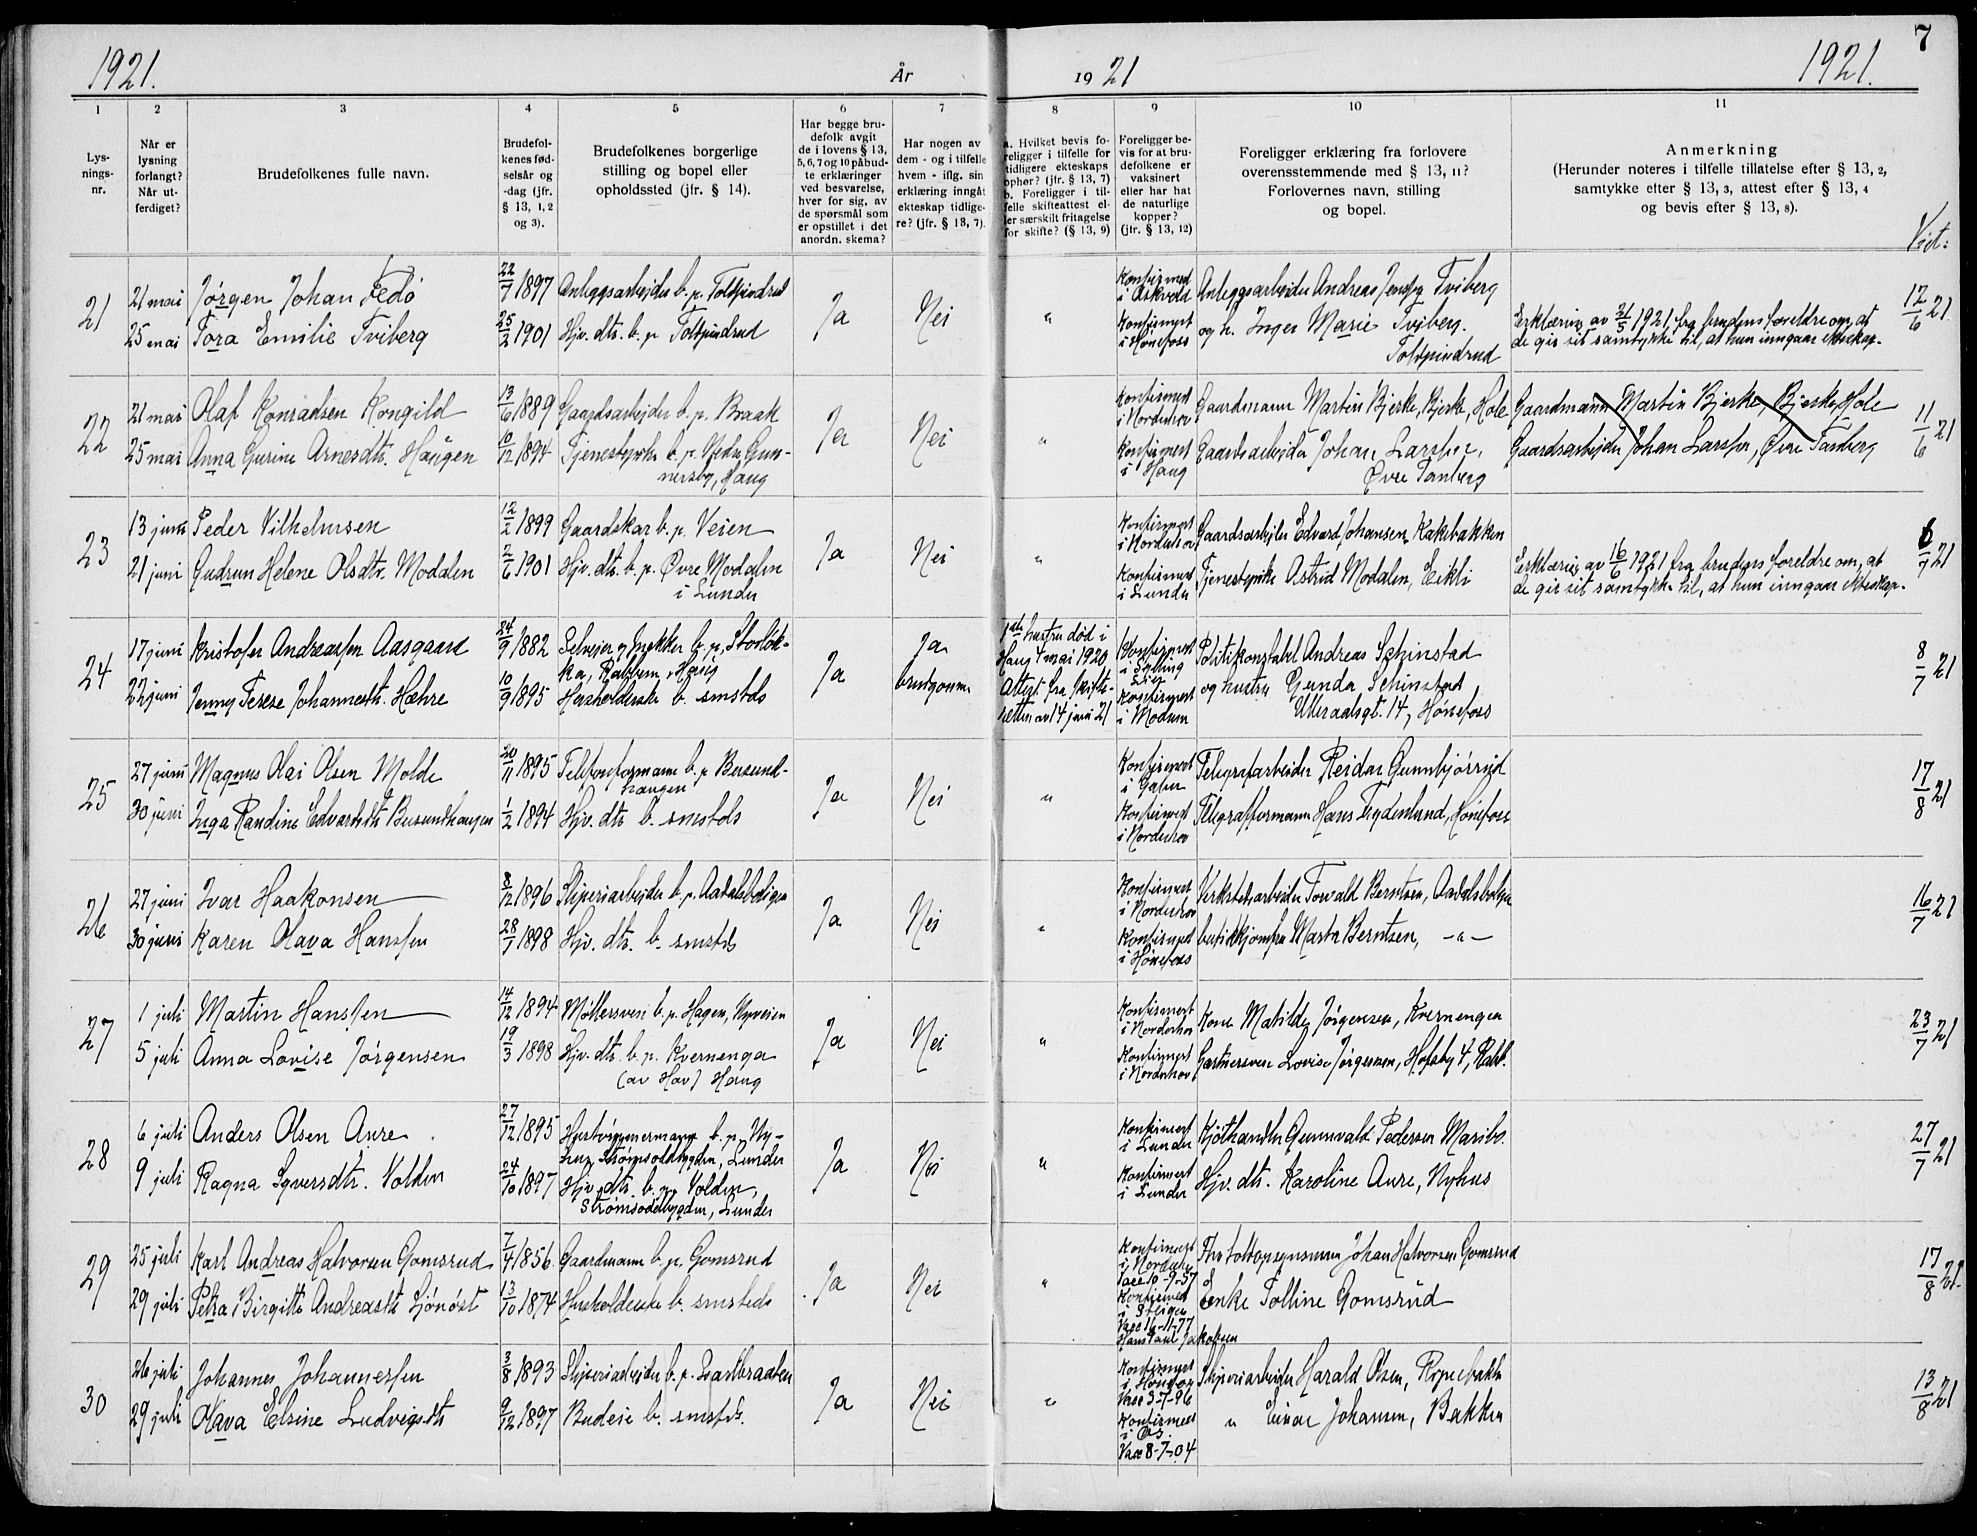 1921.
År
19 21
1921.
7
1
2
3
4
5
6
7
8
9
10
11
Lys-
nings-
nr.
Når er
lysning
forlangt?
Når ut-
ferdiget?
Brudefolkenes fulle navn.
Brudefol-
kenes fød-
selsår og
-dag (jfr.
§ 13, 1, 2
og 3).
Brudefolkenes borgerlige
stilling og bopel eller
opholdssted (jfr. § 14).
Har begge bru-
defolk avgit
de i lovens § 13,
5, 6, 7 og 10 påbud-
te erklæringer
ved besvarelse,
hver for sig, av
de spørsmål som
er opstillet i det
anordn. skema?
Har nogen av
dem - og i tilfelle
hvem - iflg. sin
erklæring inngåt
ekteskap tidlige-
re? (jfr. § 13, 7).
a. Hvilket bevis fo-
religger i tilfelle for
tidligere ekteskaps
ophør? (jfr. § 13, 7)
b. Foreligger i til-
felle skifteattest el-
ler særskilt fritagelse
for skifte? (§ 13, 9)
Foreligger be-
vis for at bru-
defolkene er
vaksinert
eller har hat
de naturlige
kopper?
(jfr. § 13, 12)
Foreligger erklæring fra forlovere
overensstemmende med § 13, 11?
Forlovernes navn, stilling
og bopel.
Anmerkning
(Herunder noteres i tilfelle tillatelse efter § 13, 2,
samtykke efter § 13, 3, attest efter § 13, 4
og bevis efter § 13, 8).
Viet:
21
21 mai Jørgen Johan Fedö 22/7 1897 Anleggsarbejder b. p. Toldpindrud
25 mai Tora Emilie Tviberg 25/2 1901 Hjv. dtr. b. p. Toldpindrud
Ja
Nei
"
Konfirmert
i Askvold
Konfirmert
i Hönefoss
Anleggsarbeider Andreas Jensen Tviberg
og h. Inger Marie Tviberg.
Toldpindrud
Erklæring av 21/5 1921 fra brudens foreldre om, at
de gir sit samtykke til, at hun inngaar ekteskap.
12/6 21
22
21 mai Olaf Konradsen Kongild 13/6 1889 Gaardsarbejder b. p. Braak
25 mai Anna Gurine Arnesdtr. Haugen 10/12 1894 Tjenestepike b. p. Nedre Gun-
nersby, Haug
Ja
Nei
"
Konfirmert
i Norderhov
Konfirmert
i Haug
Gaardmann Martin Bjerke, Bjerke, Hole
Gaardsarbeider Johan Larssen,
Øvre Tanberg
Gaardmann Martin Bjerke, Bjerke, Hole
Gaardsarbejder Johan Larssen, Øvre Tanberg
11/6 21
23
13 juni Peder Vilhelmsen 12/2 1899 Gaardskar b. p. Veien
21 juni Gudrun Helene Olsdtr. Modalen 2/6 1901 Hjv. dtr. b. p. Øvre Modalen
i Lunder
Ja
Nei
"
Konfirmert
i Norderhov
Konfirmert
i Lunder
Gaardsarbejder Edvard Johansen, Kakebakken
Tjenestepike Astrid Modalen, Eikli
Erklæring av 16/6 1921 fra brudens foreldre om, at
de gir sit samtykke til, at hun inngaar ekteskap.
6/7 21
24
17 juni Kristofer Andreassen Aasgaard 24/9 1882 Selveier og snekker b. p. Storlök-
ka,
22 juni Jenny Terese Johannesdtr. Hæhre 10/9 1895 Husholderske b. smstds
Ja
Ja
brudgommen
hustru död i
Haug 4 mai 1920
Attest fra skifte-
retten av 14 juni 21
Konfirmert
i Sylling
Konfirmert
i Modum
Politikonstabel Andreas Schinstad
og hustru Gunda Schinstad
14, Hönefoss
8/7 21
25
27 juni Magnus Olai Olsen Molde 20/11 1895 Telefonformann b. p. Busund-
haugen
30 juni Inga Randine Edvardsdtr. Busundhaugen 1/2 1894 Hjv. dtr b. smstds
Ja
Nei
"
Konfirmert
Konfirmert
i Norderhov
Telegrafarbeider Reidar Gunnbjörrud
Telegrafformann Hans Tydenlund, Hönefoss
17/8 21
26
27 juni Ivar Haakonsen 8/12 1896 Sliperiarbejder b. p. Aadalsboligen
30 juni Karen Olava Hanssen 28/7 1898 Hjv. dtr. b. smstds
Ja
Nei
"
Konfirmert
i Norderhov
Konfirmert
i Hönefoss
Verkstedarbeider Torvald Berntsen, Aadalsboligen
butikkjomfru Marta Berntsen, -"-
16/7 21
27
1 juli Martin Hanssen 14/12 1894 Möllersven b. p. Hagen, Nyveien
5 juli Anna Lovise Jörgensen 19/3 1898 Hjv. dtr. b. p. Kvernenga
(av Hov) Haug
Ja
Nei
"
Konfirmert
i Norderhov
Konfirmert
i Norderhov
Kone Matilde Jörgensen, Kvernengen
Gartnersven Lovise Jörgensen, Hofsby 4,
23/7 21
28
6 juli Anders Olsen Aure 27/12 1895 b. p. Ny-
hus, Strömsoddbygden, Lunder
9 juli Ragna Syversdtr. Volden 24/10 1897 Hjv. dtr. b. p. Volden,
Strömsoddbygden, Lunder
Ja
Nei
"
Konfirmert
i Lunder
Konfirmert
i Lunder
Kjöthandler Gunnvald Pedersen Maribo
Hjv. dtr. Karoline Aure, Nyhus
27/7 21
29
25 juli Karl Andreas Halvorsen Gomsrud 7/4 1856 Gaardmann b. p. Gomsrud
29 juli Petra Birgitte Andreasdtr. Sjönöst 13/10 1874 Husholderske b. smsteds
Ja
Nei
"
Konfirmert
i Norderhov
Vacc 10-9-57
Konfirmert
i Steigen
Vacc 16-11-77
Hans Paul Jakobsen
Johan Halvorsen Gomsrud
Enke Tolline Gomsrud
17/8 21.
30
26 juli Johannes Johannessen 3/8 1893 Sliperiarbejder b. p. Svartbraaten
29 juli Olava Elsine Ludvigsdtr 9/12 1897 Budeie b. smstds.
Ja
Nei
"
Konfirmert
Vacc 3-7-96
Konfirmert
i Ås.
Vacc 8-7-04
Sliperiarbeider Harald Olsen, Rypebakken
" Einar Johansen, Bakken
13/8 21